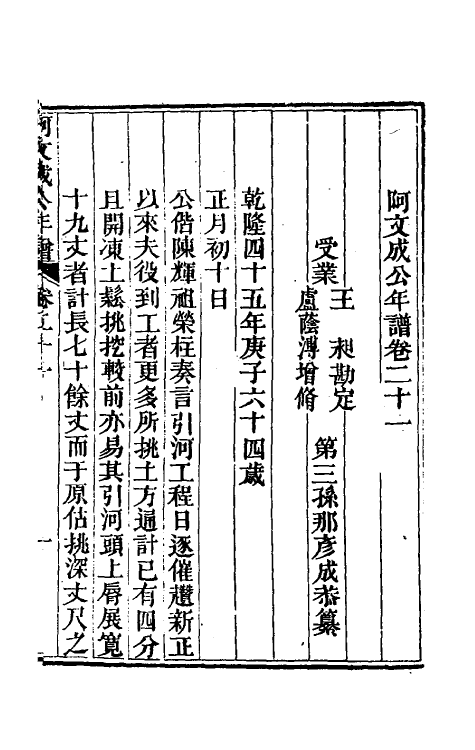 阿文成公年譜卷二十一
受業 王　昶勘定 第三孫那彥成恭纂
盧蔭溥增脩
乾隆四十五年庚子六十四歲
正月初十日
公偕陳輝祖榮柱奏言引河工程日逐催趲新正
以來夫役到工者更多所挑土方通計已有四分
且開凍土鬆挑挖較前亦易其引河頭上脣展寬
十九丈者計長七十餘丈而于原估挑深丈尺之
阿文成公年譜 卷二十一 一